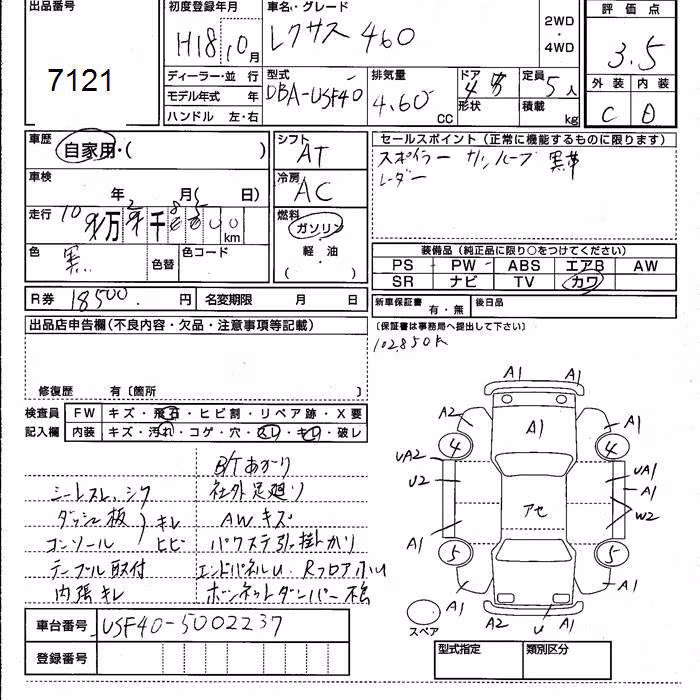 出品番号
7121
初度登録年月
H18 10月
車名・グレード
レクサス 460
2WD
・
4WD
評価点
3.5
外装 内装
C D
ディーラー・並行
モデル年式 年
ハンドル 左・右
型式
DBA-USF40
排気量
4.60 CC
ドア
4
形状
定員
5人
積載
kg
車歴
自家用・( )
車検
年 月( 日)
走行
万 千 km
色
黒
色替
色コード
シフト
AT
冷房
AC
燃料
ガソリン
・
軽・油
( )
セールスポイント (正常に機能するものに限ります)
スポイラー サンルーフ 黒革
レーダー
装備品 (純正品に限り○をつけてください)
PS PW ABS エアB AW
SR ナビ TV カワ
R券 18500 円 名変期限 月 日
新車保証書 有・無 後日品
出品店申告欄(不良内容・欠品・注意事項等記載)
(保証書は事務局へ提出して下さい)
102,850K
修復歴 有〔箇所 〕
検査員 FW キズ・飛石・ヒビ割・リペア跡・X要
記入欄 内装 キズ・汚れ・コゲ・穴・スレ・キレ・破レ
B/Tあがり
シートスレ、シワ 社外足廻り
ダッシュ板 キレ AWキズ
コンソール ヒビ パワステ引っ掛かり
テーブル取付 エンドパネルU Rフロア小U
内張キレ ボーンネットダンパー不良
車台番号 USF40-5002237
登録番号
A1 A1
A2 A1 A1
4 4
UA2 UA1
U2 A1
W2
アセ
A1 A1
5 5
A1 A1
A2 U A1
スペア
型式指定 類別区分